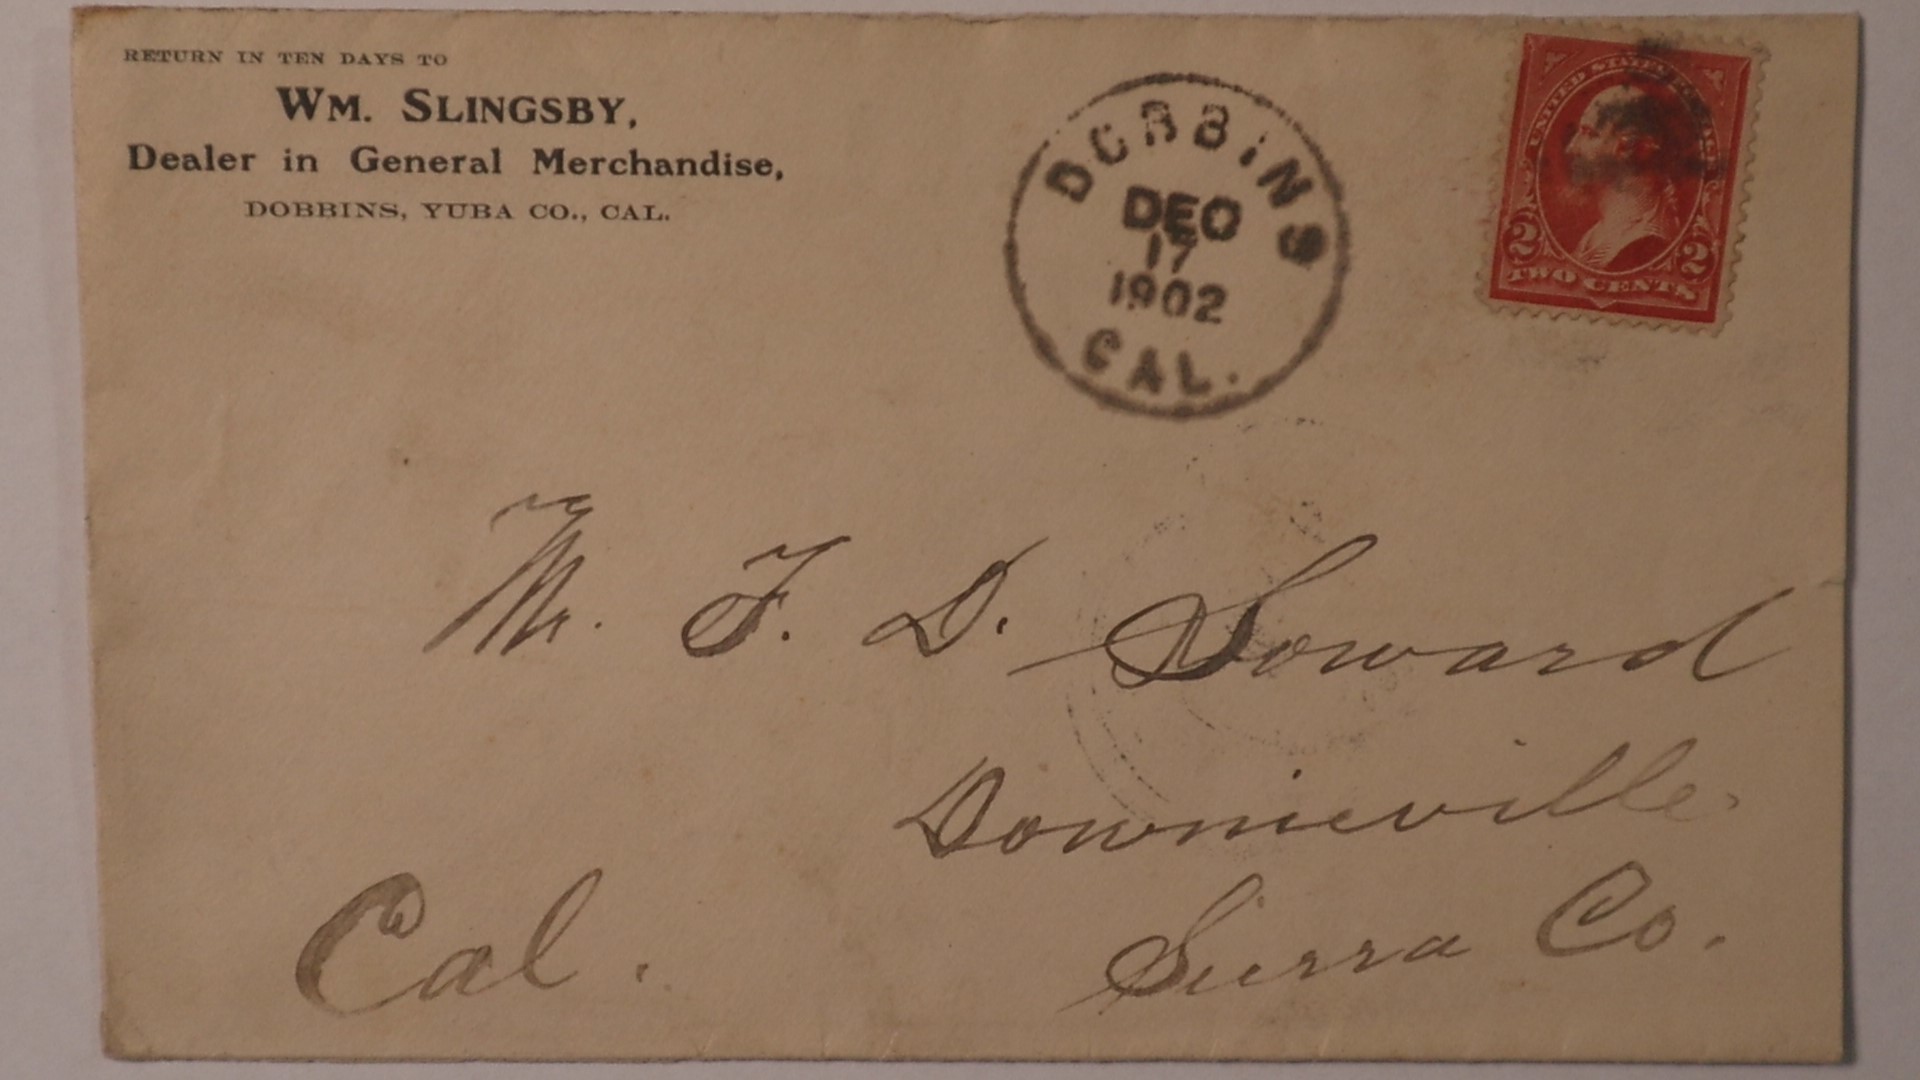 RETURN IN TEN DAYS TO
WM. SLINGSBY,
Dealer in General Merchandise,
DOBBINS, YUBA CO., CAL.
DOBBINS
DEC
17
1902
CAL.
UNITED STATES POSTAGE
2 2
TWO CENTS
Mr. F. D. Soward
Downieville
Sierra Co.
Cal.